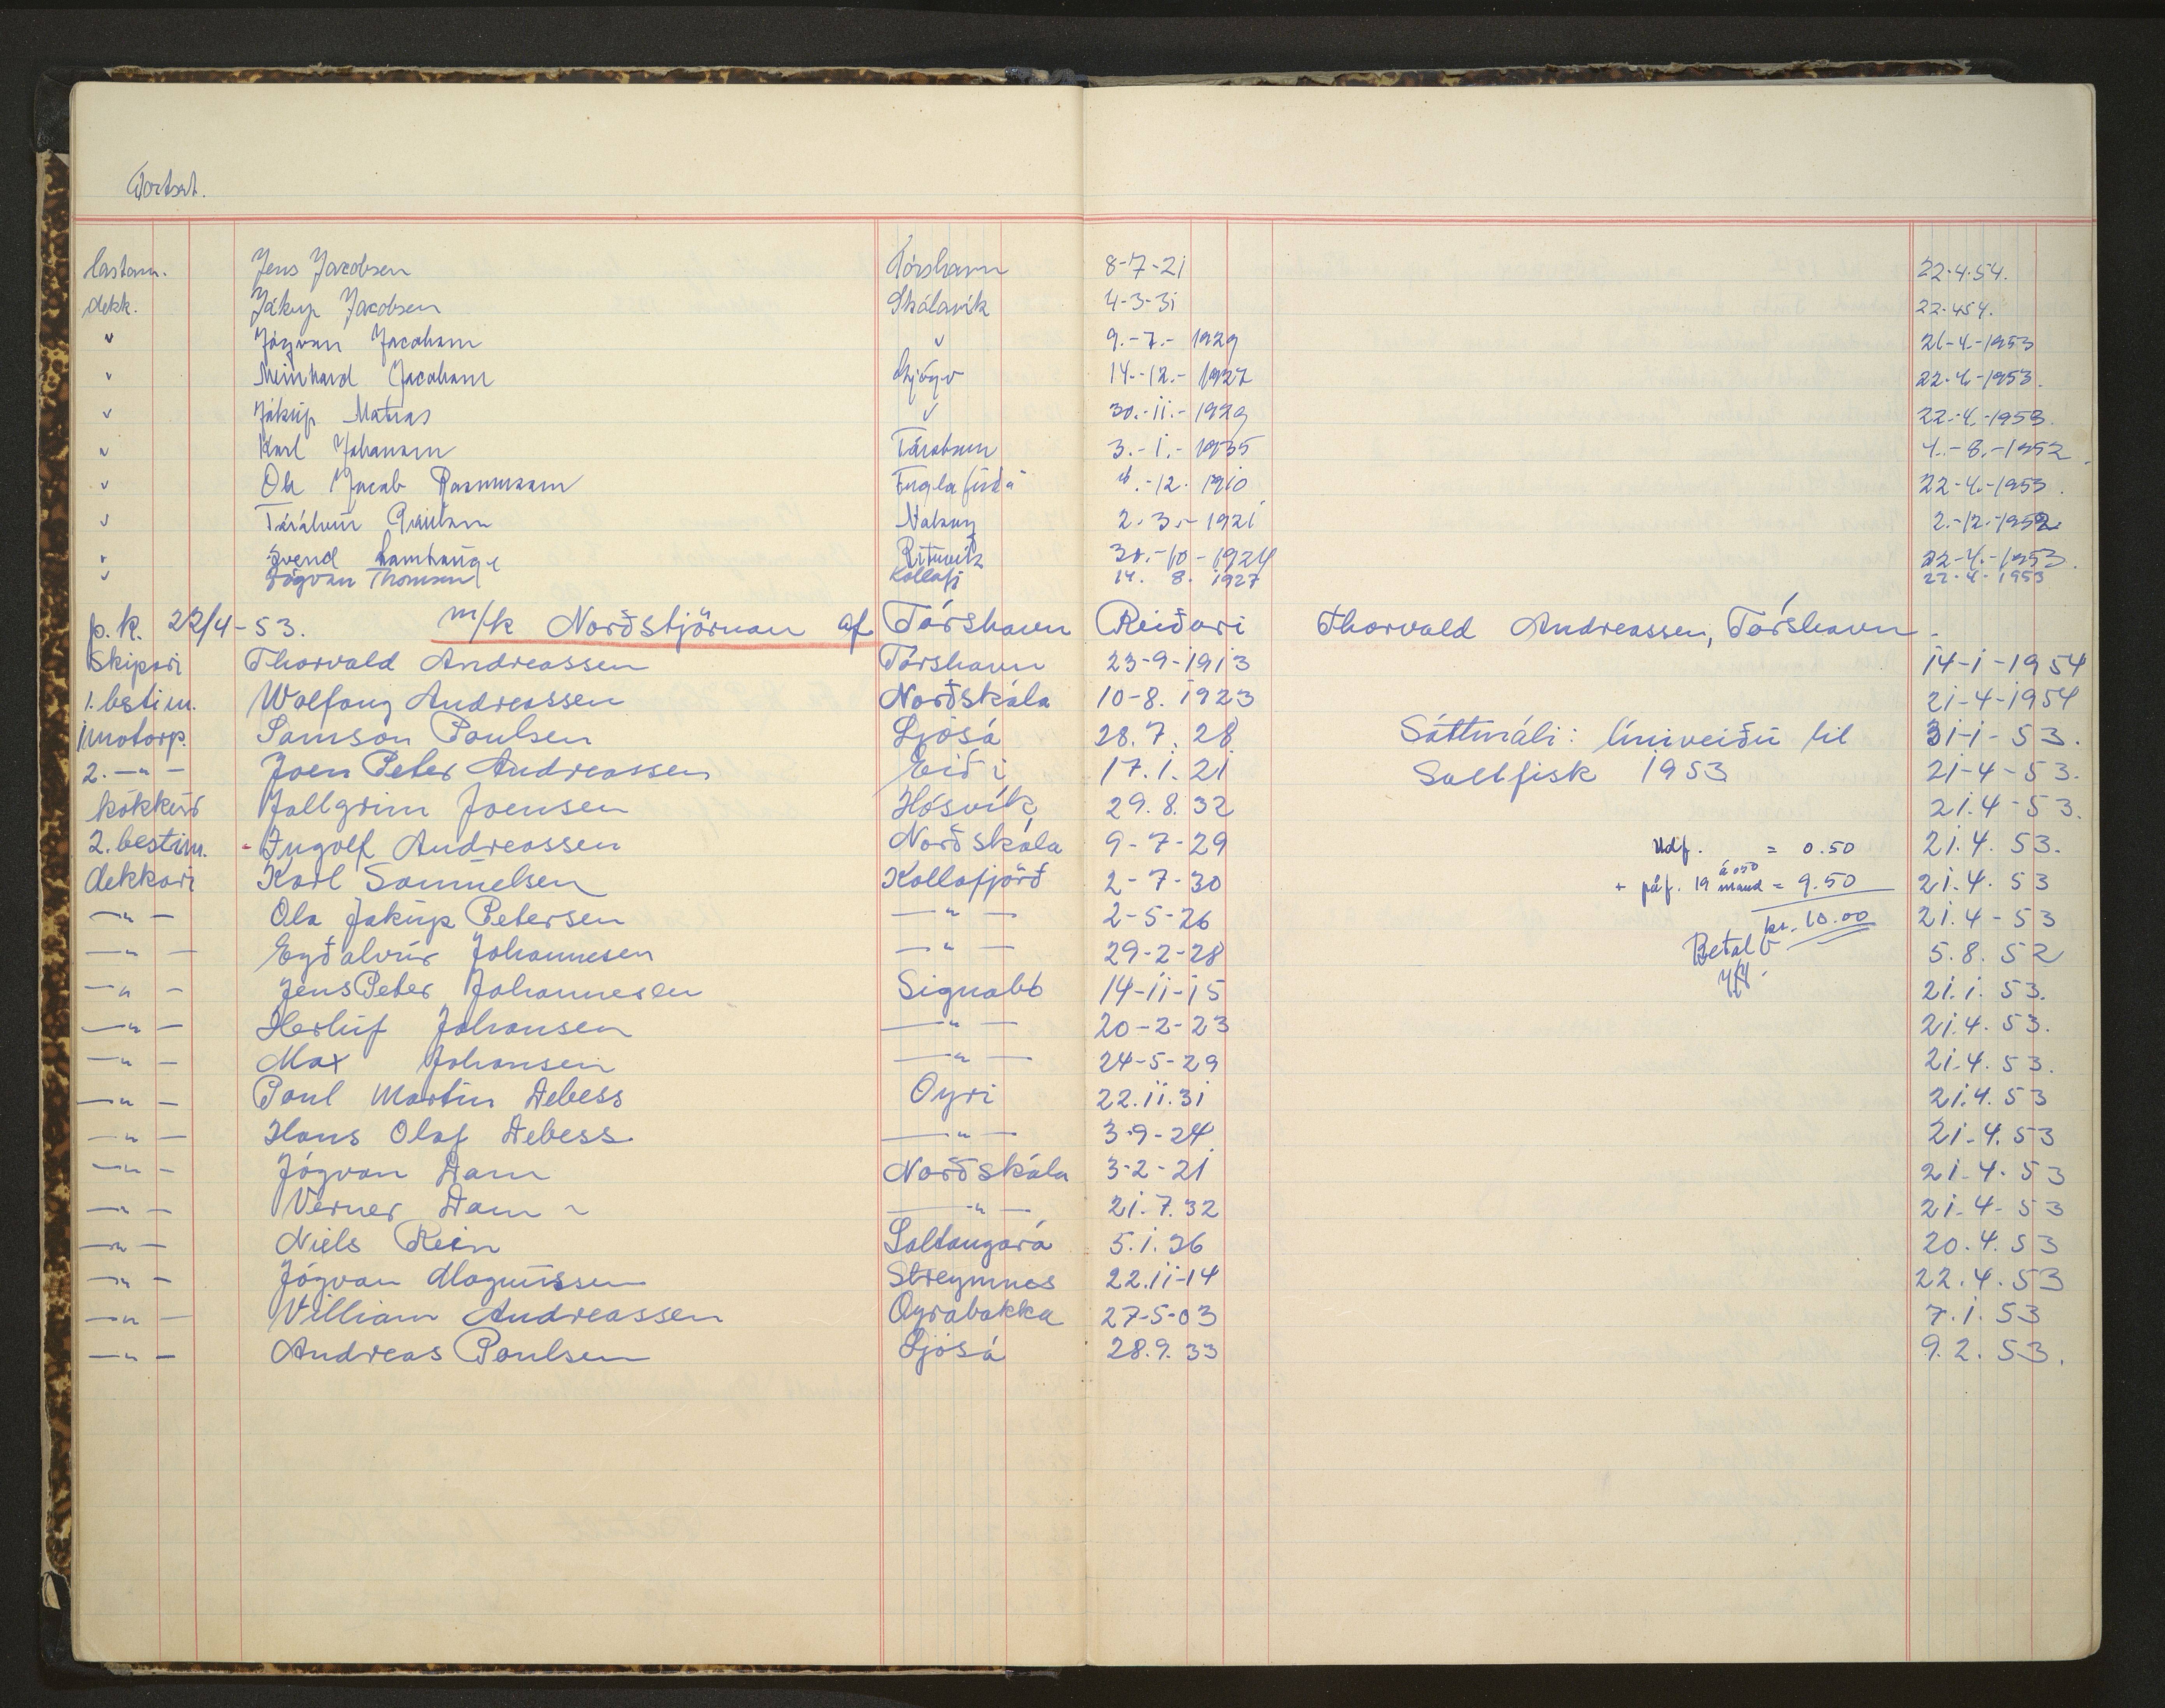 Fortsat.
lastam. Jens Jacobsen Tórshavn 8-7-21 22-4.54.
dekk. Jákup Jacobsen Skálavík 4-3-31 22-454.
" Jógvan Jacobsen " 9.-7.- 1929 21-4.-1953
" Meinhard Jacobsen Gjógv 14.-12.- 1927 22-4-1953.
" Jákup Matras " 30.-11.- 1929 22-4.-1953.
" Karl Johansen Tórshavn 3.-1.- 1935 4.-8.-1952.
" Ole Jacob Rasmussen Fuglafirði .-12. 1910 22-4.-1953.
" Tórálvur Nólsoy 2.3.- 1921 2.-12.-1952.
" Svend Lambhauge Rituvík 30.-10-1924 22-4.-1953.
" Jógvan Thomsen Kollafj 14. 8. 1927 22-4-1953
p.k. 22/4-53. m/k Norðstjörnan af Tórshavn Reiðari Thorvald Andreassen, Tórshavn.
Skipari Thorvald Andreassen Tórshavn 23-9-1913 14-1-1954
1.bestim. Wolfang Andreassen Norðskála 10-8.1923 21-4-1954
1motorp. Samson Poulsen Ljósá 28.7.28 Sáttmáli: línuveiðu til 31-1-53.
2. -"- Joen Peter Andreassen Eiði 17.1.21 Saltfisk 1953 21-4-53.
kokkur Jallgrim Joensen Hósvík 29.8.32 21.4-53.
2.bestim. - Ingolf Andreassen Norðskála 9-7-29 Udf. = 0.50 21.4.53.
dekkari Karl Samuelsen Kollafjörð 2-7-30 + påf. 19 mand á 050 = 9.50 21.4.53
-"- Ola Jakup Petersen -"- 2-5-26 kr. 10.00 21.4-53
-"- Eyðalvur Johannesen -"- 29-2-28 Betalt 5.8.52
-"- Jens Peter Johannesen Signabö 14-11-15 21.1.53.
-"- Herluf Johansen -"- 20-2-23 21.4.53.
-"- Max Johansen -"- 24-5-29 21.4.53.
-"- Poul Martin Debess Oyri 22.11.31 21.4.53
-"- Hans Olaf Debess -"- 3-9-24 21-4.53
-"- Jógvan Dam Norðskála 3-2-21 21-4-53
-"- Verner Dam -"- 21.7.32 21-4-53
-"- Niels Rein Saltangará 5.1.36 20.4.53
-"- Jógvan Magnussen Streymnes 22.11-14 22.4.53
-"- Villiam Andreassen Oyrabakka 27-5-03 7.1.53
-"- Andreas Poulsen Ljósá 28.9.33 9.2.53.